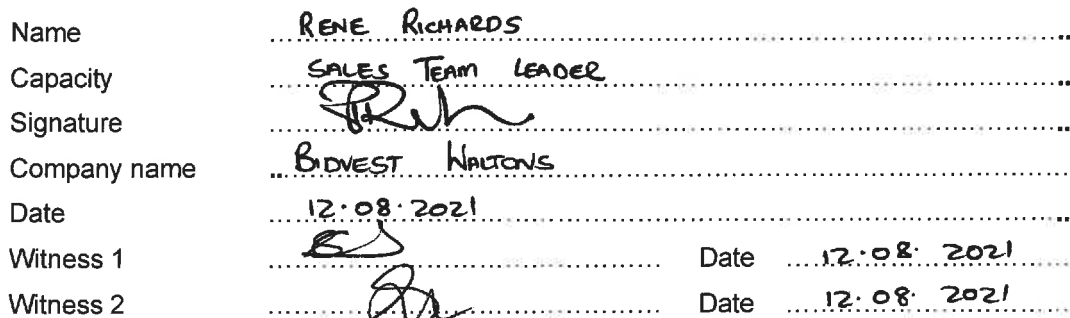 Name RENE RICHARDS
Capacity SALES TEAM LEADER
Signature
Company name BIDVEST WALTONS
Date 12.08.2021
Witness 1 Date 12.08.2021
Witness 2 Date 12.08.2021